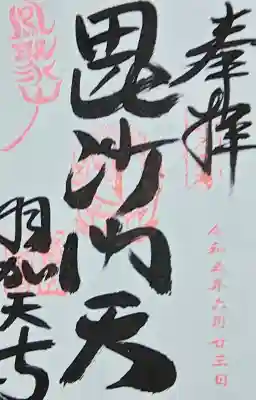 奉拝
令和五年六月廿三日
毘沙門天
鳳聚山
羽賀寺